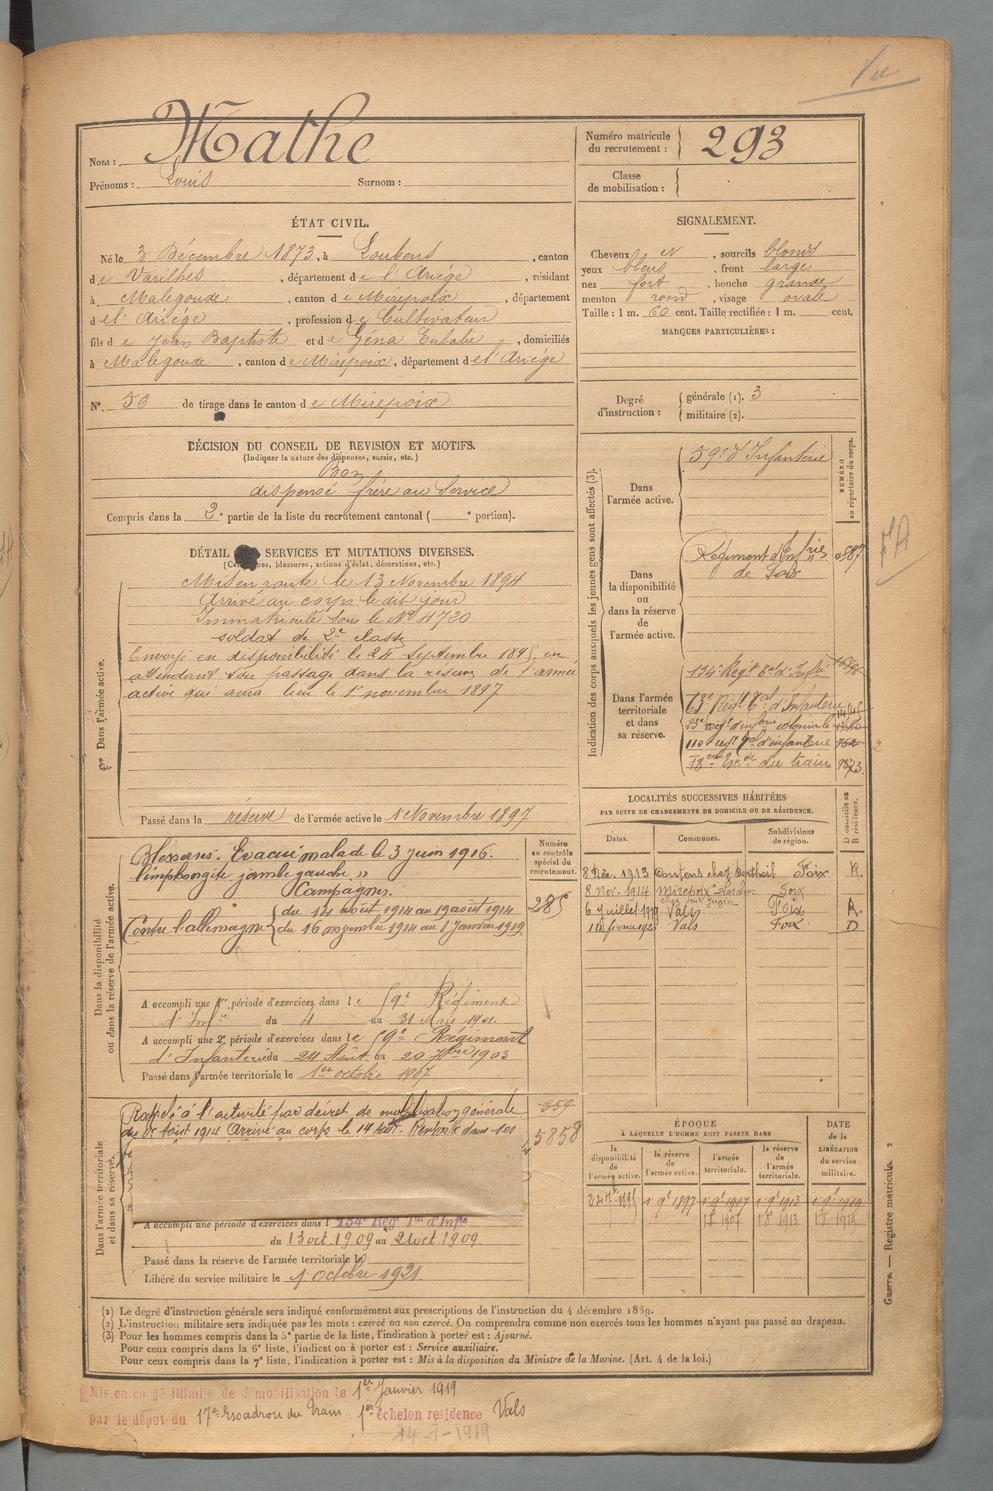 Vu
Nom : Mathe
Prénoms : Louis Surnom :
Numéro matricule du recrutement : 293
Classe de mobilisation :
ÉTAT CIVIL.
Né le 3 Décembre 1873, à Loubens, canton
de Varilhes, département de l'Ariège, résidant
à Malegoude, canton de Mirepoix, département
de l'Ariège, profession de Cultivateur
fils de Jean Baptiste et de Géna Eulalie, domiciliés
à Malegoude, canton de Mirepoix, département de l'Ariège
N° 56 de tirage dans le canton de Mirepoix
SIGNALEMENT.
Cheveux N, sourcils blonds
yeux bleus, front large
nez fort, bouche grande
menton rond, visage ovale
Taille : 1 m. 60 cent. Taille rectifiée : 1 m. cent.
MARQUES PARTICULIÈRES :
Degré d'instruction : générale (1). 3
militaire (2).
DÉCISION DU CONSEIL DE REVISION ET MOTIFS.
(Indiquer la nature des dispenses, sursis, etc.)
Bon
dispensé frère au service
Compris dans la 2e partie de la liste du recrutement cantonal ( e portion).
DÉTAIL SERVICES ET MUTATIONS DIVERSES.
(Campagnes, blessures, actions d'éclat, décorations, etc.)
Dans l'armée active.
Mis en route le 13 Novembre 1894
Arrivé au corps le dit jour
Immatriculé sous le N° 4720
soldat de 2e classe
Envoyé en disponibilité le 24 Septembre 1895, en
attendant son passage dans la réserve de l'armée
active qui aura lieu le 1er novembre 1897
Passé dans la réserve de l'armée active le 1er Novembre 1897
Indication des corps auxquels les jeunes gens sont affectés (3).
NUMÉRO au répertoire du corps.
Dans l'armée active.
59e d'Infanterie
Dans la disponibilité ou dans la réserve de l'armée active.
Régiment d'Infrie
de Foix
Dans l'armée territoriale et dans sa réserve.
134e Regt Tal d'Infie
63e Regt Tal d'Infanterie
23e regt d'infrie coloniale
110 regt Tal d'infanterie
18e Esc. du train 9873
LOCALITÉS SUCCESSIVES HABITÉES
PAR SUITE DE CHANGEMENTS DE DOMICILE OU DE RÉSIDENCE.
Dates. Communes. Subdivisions de région. D domicile ou R résidence.
8 Déc. 1913 Foix R.
8 nov. 1914 Mirepoix Foix
6 Juillet 1919 Vals Foix R.
Vals Foix D
Dans la disponibilité ou dans la réserve de l'armée active.
Numéro au contrôle spécial du recrutement.
285
Blessures. Evacué malade le 3 Juin 1916.
"limphangite jambe gauche"
Campagnes.
Contre l'allemagne du 14 août 1914 au 19 août 1914
du 16 novembre 1914 au 1 Janvier 1919.
A accompli une 1re période d'exercices dans le 59e Régiment
d'Infie du 4 au 31 Mars 1901.
A accompli une 2e période d'exercices dans le 59e Régiment
d'Infanterie du 24 Août au 20 7bre 1903
Passé dans l'armée territoriale le 1er octobre 1907
Dans l'armée territoriale et dans sa réserve.
Rappelé à l'activité par décret de mobilisation générale
du 1er Août 1914 Arrivé au corps le 14 août. Renvoyé dans ses
359
5858
A accompli une période d'exercices dans l 134e Régt Tal d'Infie
du 13 oct 1909 au 21 oct 1909
Passé dans la réserve de l'armée territoriale le
Libéré du service militaire le 1 octobre 1921.
ÉPOQUE À LAQUELLE L'HOMME DOIT PASSER DANS
la disponibilité de l'armée active. la réserve de l'armée active. l'armée territoriale. la réserve de l'armée territoriale.
DATE de la LIBÉRATION du service militaire.
1er 9e 1897 1er 9e 1907 1er 9e 1913 1er 9e 1919
1 8 1907 1 8 1913 1 8 1919
(1) Le degré d'instruction générale sera indiqué conformément aux prescriptions de l'instruction du 4 décembre 1889.
(2) L'instruction militaire sera indiquée par les mots : exercé ou non exercé. On comprendra comme non exercés tous les hommes n'ayant pas passé au drapeau.
(3) Pour les hommes compris dans la 5e partie de la liste, l'indication à porter est : Ajourné.
Pour ceux compris dans la 6e liste, l'indication à porter est : Service auxiliaire.
Pour ceux compris dans la 7e liste, l'indication à porter est : Mis à la disposition du Ministre de la Marine. (Art. 4 de la loi.)
Guerre. — Registre matricule. 2
Mis en congé illimité de démobilisation le 1er Janvier 1919
par le dépôt du 17e Escadron du Train 1er échelon résidence Vals
14-1-1919